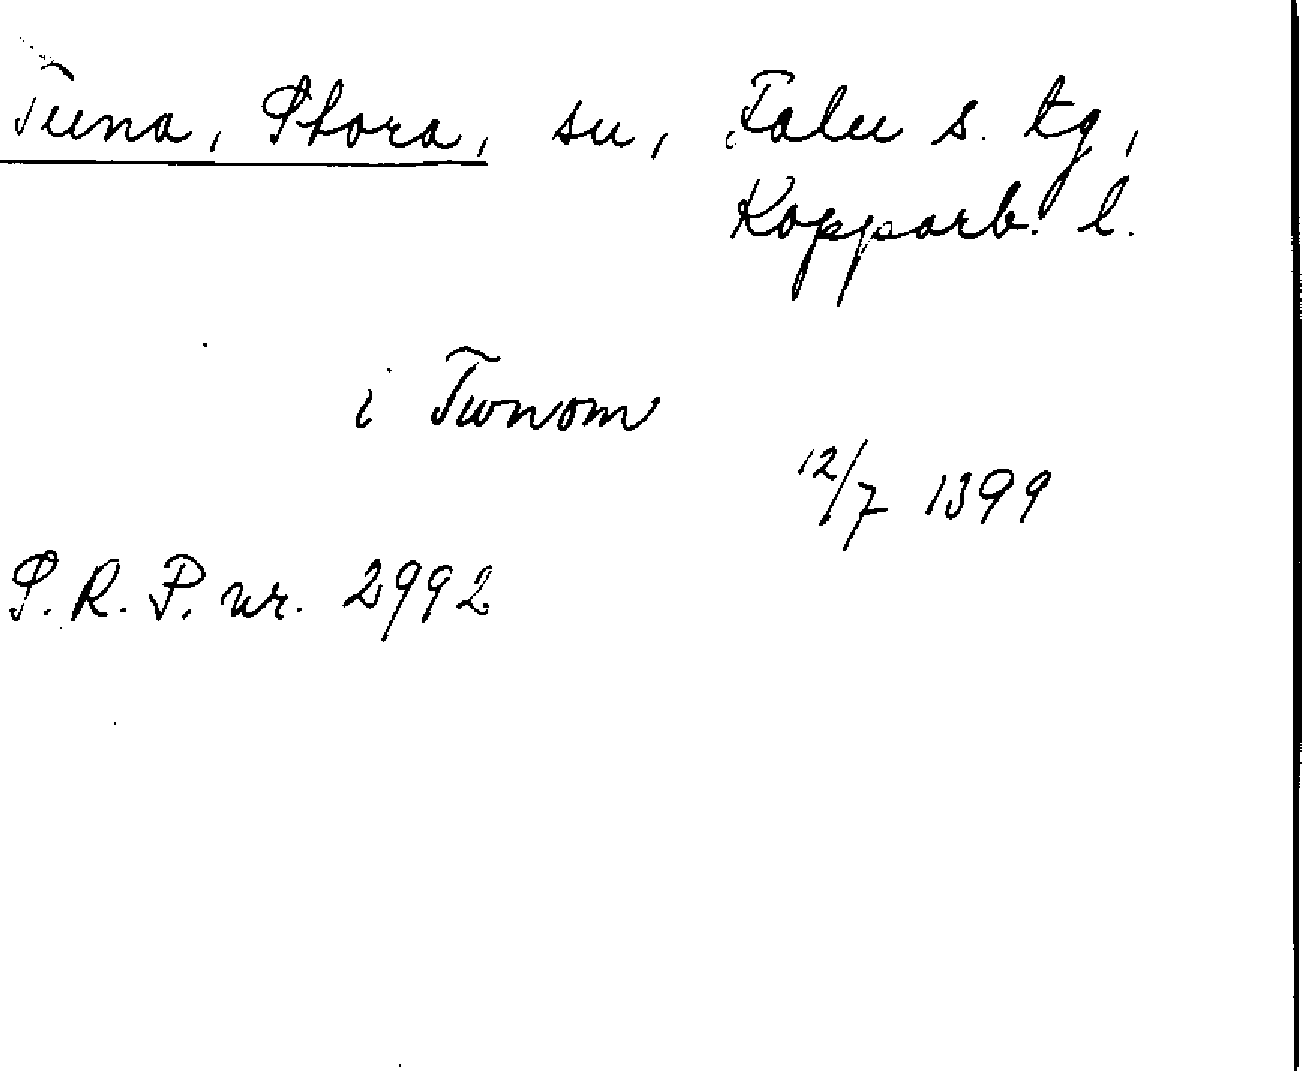 Tuna, Stora, sn, Falu s. tg,
Kopparb. l.
i Twnom
12/7 1399
S. R. P. nr. 2992